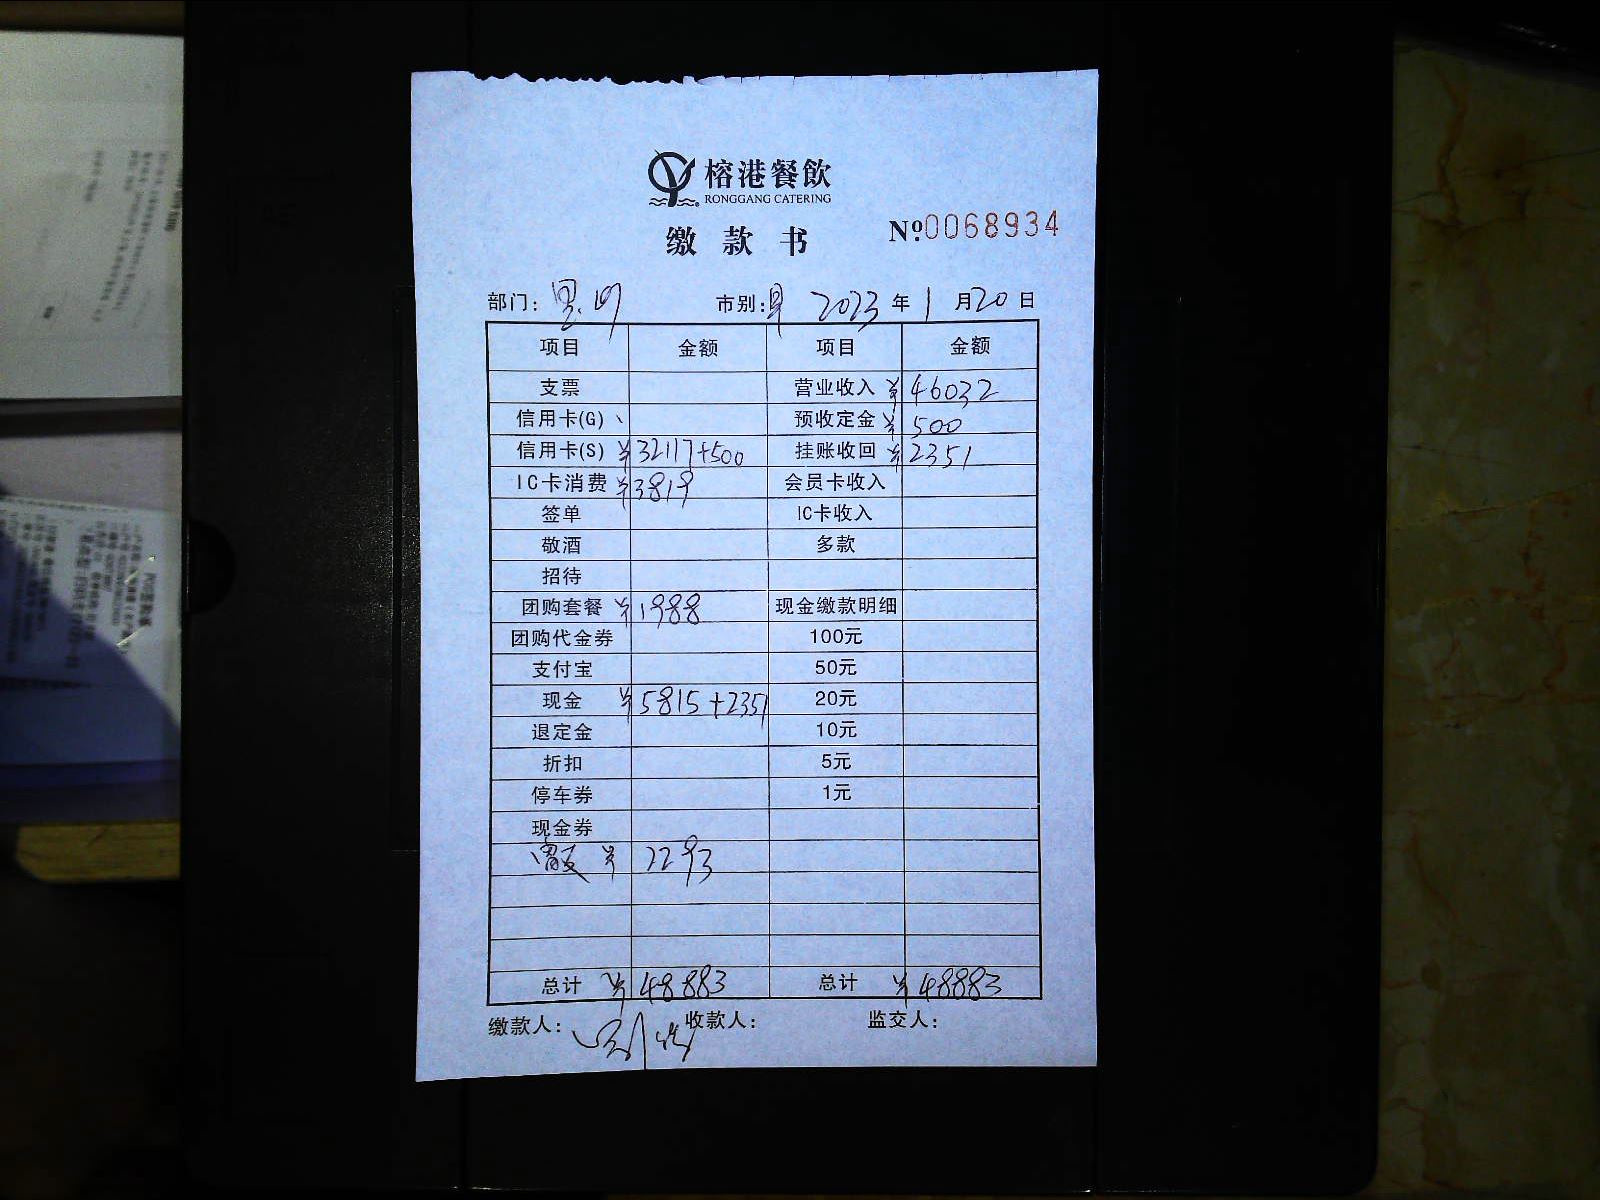 榕港餐飲
RONGGANG CATERING
缴款书
№0068934
部门: 市别: 2023年1月20日
项目 金额 项目 金额
支票 营业收入 ¥46032
信用卡(G) 预收定金 ¥500
信用卡(S) ¥32117+500 挂账收回 ¥2351
IC卡消费 ¥3819 会员卡收入
签单 IC卡收入
敬酒 多款
招待
团购套餐 ¥1988 现金缴款明细
团购代金券 100元
支付宝 50元
现金 ¥5815+2351 20元
退定金 10元
折扣 5元
停车券 1元
现金券
¥2293
总计 ¥48883 总计 ¥48883
缴款人: 收款人: 监交人: